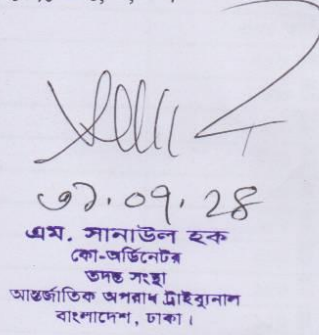 ৩১.০৭.২৪
এম. সানাউল হক
কো-অর্ডিনেটর
তদন্ত সংস্থা
আন্তর্জাতিক অপরাধ ট্রাইব্যুনাল
বাংলাদেশ, ঢাকা।